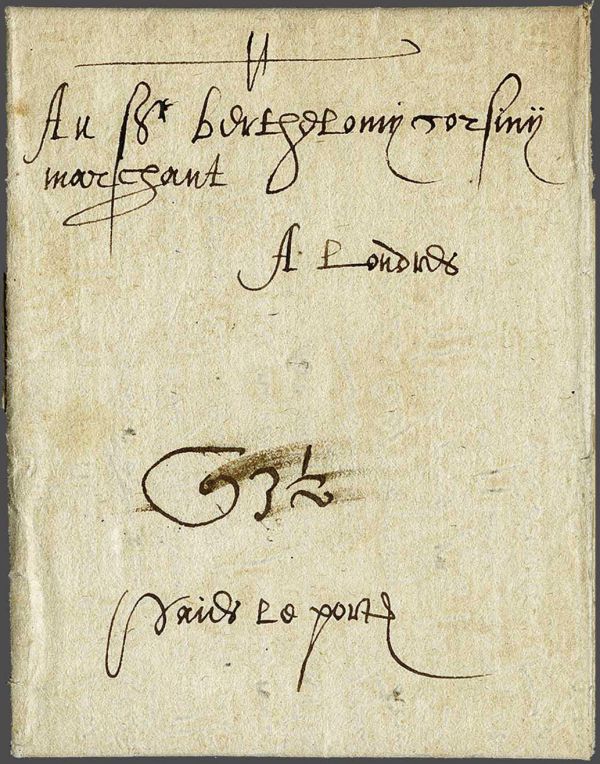 Au Sr berthelomy corsiny
marchant
A Londres
3 ½
paies le port